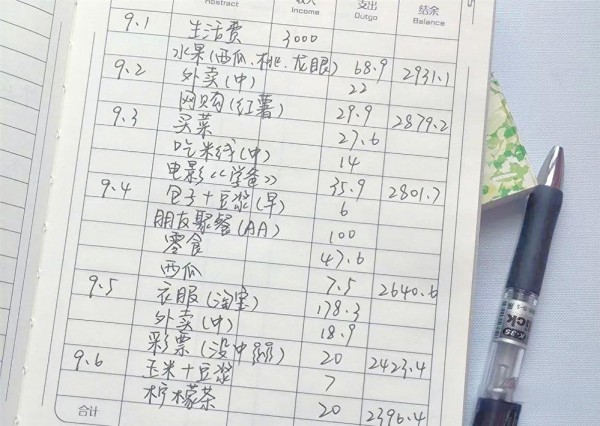 支出 结余
Abstract Income Outgo Balance
9.1 生活费 3000
水果(西瓜、桃、龙眼) 68.9 2931.1
9.2 外卖(中) 22
网购(红薯) 29.9 2879.2
9.3 买菜 27.6
吃米线(中) 14
电影《学爸》 35.9 2801.7
9.4 包子+豆浆(早) 6
朋友聚餐(AA) 100
零食 47.6
西瓜 7.5 2640.6
9.5 衣服(淘宝) 178.3
外卖(中) 18.9
彩票(没中) 20 2423.4
9.6 玉米+豆浆 7
柠檬茶 20 2396.4
合计
K-35